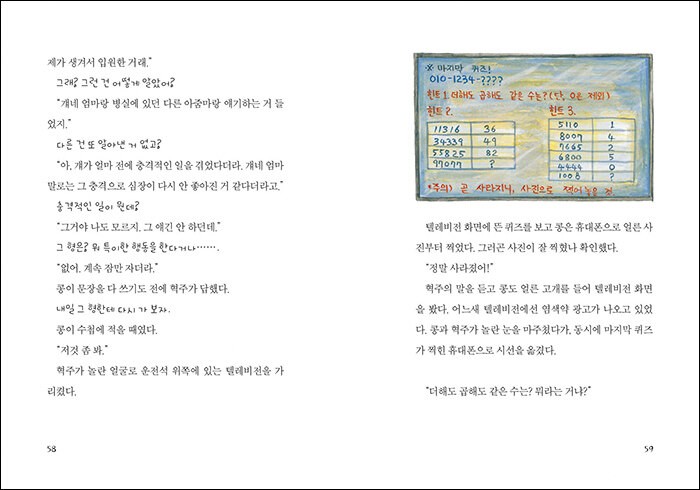 제가 생겨서 입원한 거래.”
그래? 그런 건 어떻게 알았어?
“걔네 엄마랑 병실에 있던 다른 아줌마랑 얘기하는 거 들
었지.”
다른 건 또 알아낸 거 없고?
“아, 걔가 얼마 전에 충격적인 일을 겪었다더라. 걔네 엄마
말로는 그 충격으로 심장이 다시 안 좋아진 거 같다더라고.”
충격적인 일이 뭔데?
“그거야 나도 모르지. 그 얘긴 안 하던데.”
그 형은? 뭐 특이한 행동을 한다거나…….
“없어. 계속 잠만 자더라.”
콩이 문장을 다 쓰기도 전에 혁주가 답했다.
내일 그 형한테 다시 가 보자.
콩이 수첩에 적을 때였다.
“저것 좀 봐.”
혁주가 놀란 얼굴로 운전석 위쪽에 있는 텔레비전을 가
리켰다.
58
※ 마지막 퀴즈!
010-1234-????
힌트 1. 더해도 곱해도 같은 수는? (단, 0은 제외)
힌트 2. 힌트 3.
11316 36
34339 49
55825 82
97077 ?
5110 1
8007 4
7665 2
6800 5
4444 0
1008 ?
*주의) 곧 사라지니, 사진으로 찍어 놓을 것.
텔레비전 화면에 뜬 퀴즈를 보고 콩은 휴대폰으로 얼른 사
진부터 찍었다. 그러곤 사진이 잘 찍혔나 확인했다.
“정말 사라졌어!”
혁주의 말을 듣고 콩도 얼른 고개를 들어 텔레비전 화면
을 봤다. 어느새 텔레비전에선 염색약 광고가 나오고 있었
다. 콩과 혁주가 놀란 눈을 마주쳤다가, 동시에 마지막 퀴즈
가 찍힌 휴대폰으로 시선을 옮겼다.
“더해도 곱해도 같은 수는? 뭐라는 거냐?”
59